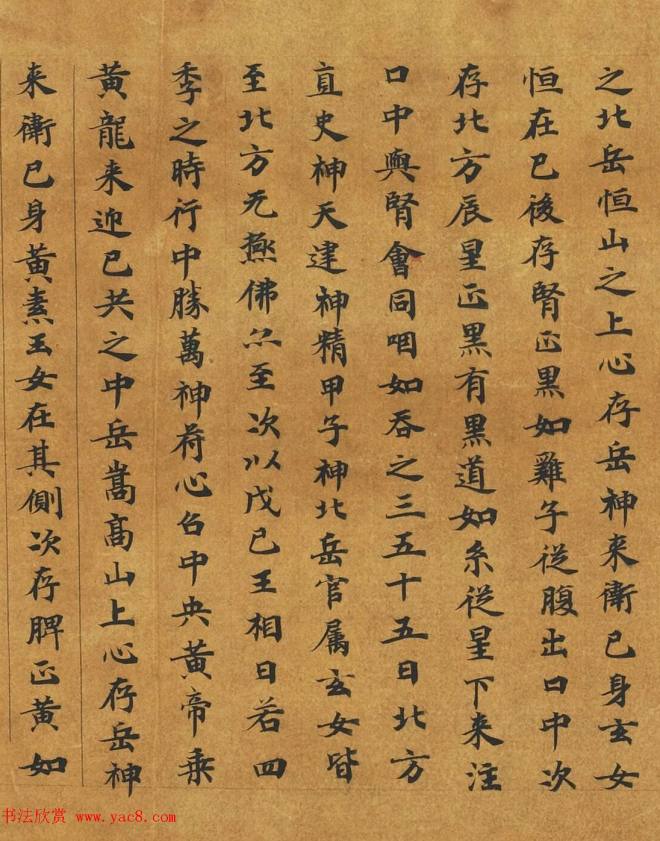 之北岳恒山之上心存岳神来衛已身玄女
恒在已後存腎正黒如雞子従腹出口中次
存北方辰星正黒有黒道如糸従星下来注
口中與腎會同咽如吞之三五十五日北方
直史神天建神精甲子神北岳官属玄女皆
至北方无極佛亦至次以戊己王相日若四
季之時行中勝萬神符心召中央黄帝乗
黄龍来迎已共之中岳嵩髙山上心存岳神
来衛已身黄素玉女在其側次存脾正黄如
书法欣赏 www.yac8.com